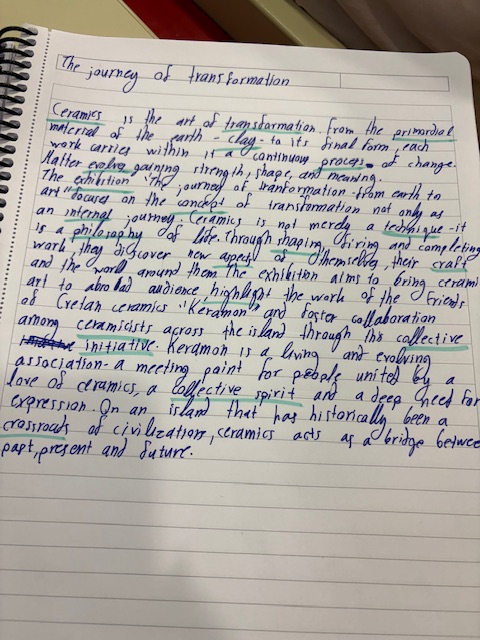 The journey of transformation
Ceramics is the art of transformation. From the primordial
material of the earth - clay - to its final form, each
work carries within it a continuous process of change.
Matter evolve gaining strength, shape, and meaning.
The exhibition "The journey of tranformation - from earth to
art" focuses on the concept of transformation not only as
an internal journey. Ceramics is not merely a technique - it
is a philosophy of life. Through shaping, firing and completing
work, they discover new aspects of themselves, their craft
and the world around them. The exhibition aims to bring cerami
art to abroad audience, highlight the work of the Friends
of Cretan ceramics "Keramon" and foster collaboration
among ceramicists across the island through this collective
initiative. Keramon is a living and evolving
association - a meeting point for people united by a
love of ceramics, a collective spirit and a deep need for
expression. On an island that has historically been a
crossroads of civilizations, ceramics acts as a bridge betwee
past, present and future.